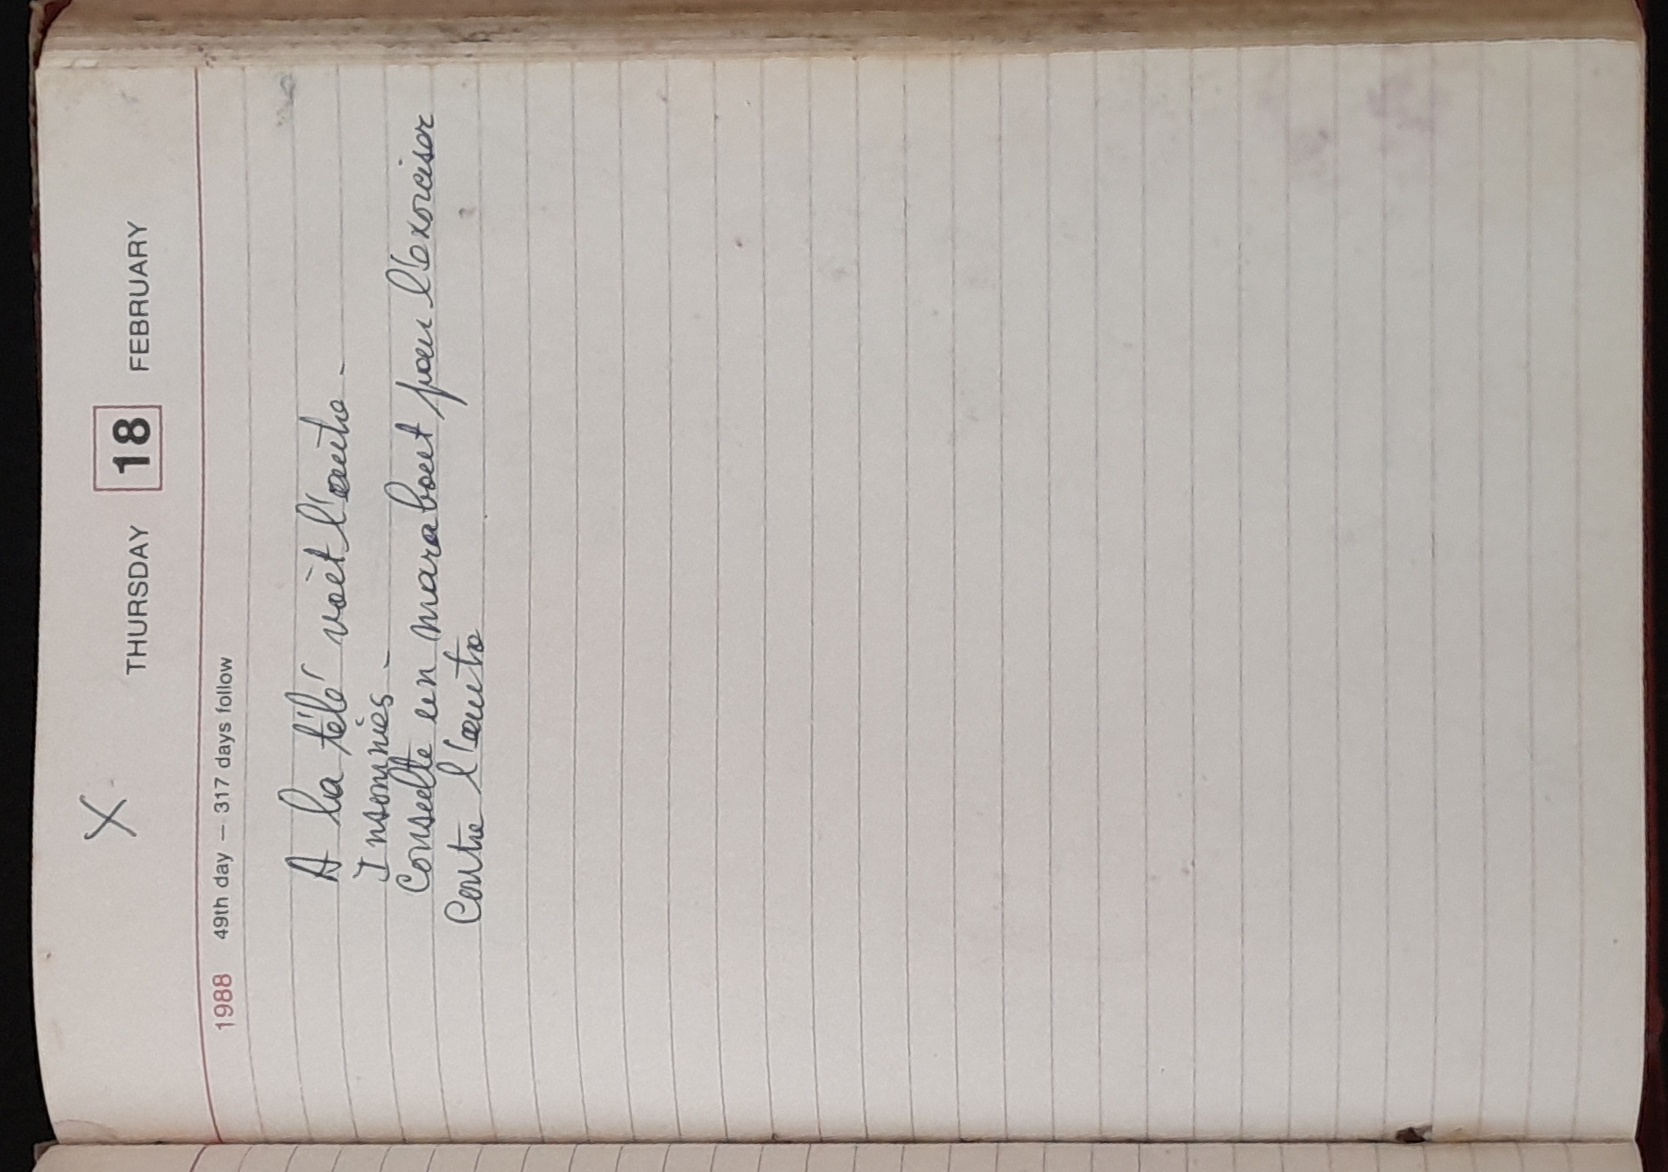 X
THURSDAY 18 FEBRUARY
1988 49th day – 317 days follow
A la télé voit l'autre -
Insomnies -
Consulte un marabout pour l'exorciser
Contre l'autre